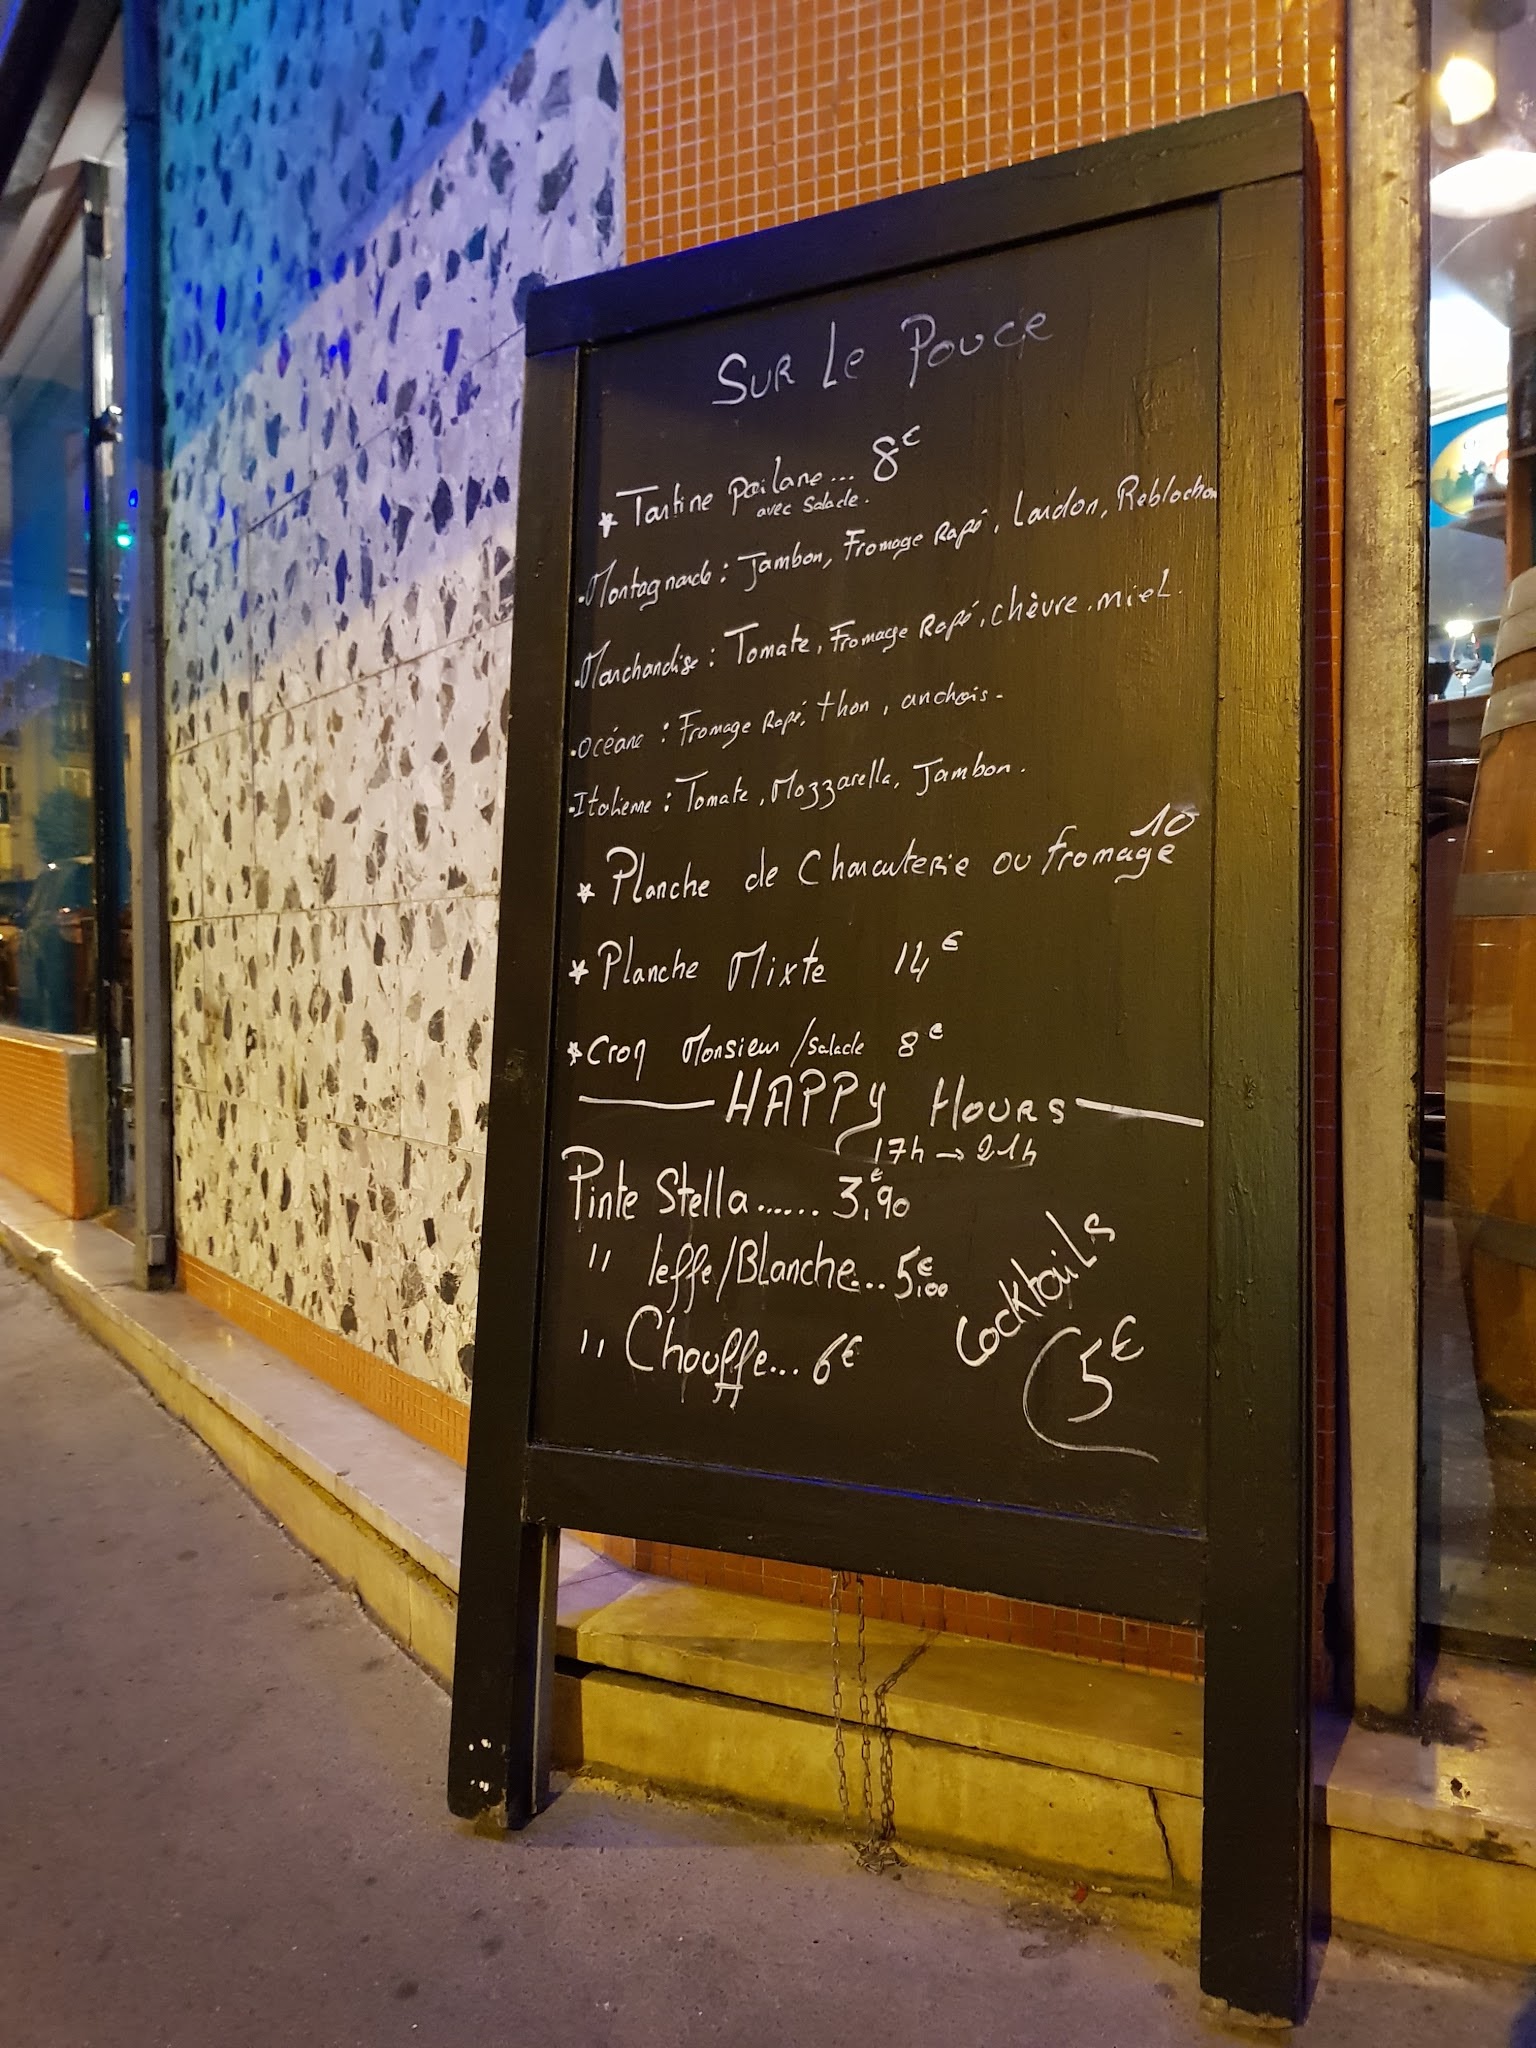 SUR Le Pouce
* Tartine poilane... 8€
avec salade.
. Montagnarde : Jambon, Fromage Rapé, Lardon, Reblochon
. Marchandise : Tomate, Fromage Rapé, chèvre. miel.
. océane : Fromage Rapé, thon, anchois-
. Italienne : Tomate, Mozzarella, Jambon.
* Planche de Charcuterie ou fromage 10
* Planche Mixte 14€
* Croq Monsieur/salade 8€
HAPPY HOURS
17h → 21h
Pinte Stella...... 3,€90
" leffe/Blanche... 5,€00
" Chouffe... 6€
Cocktails
5€